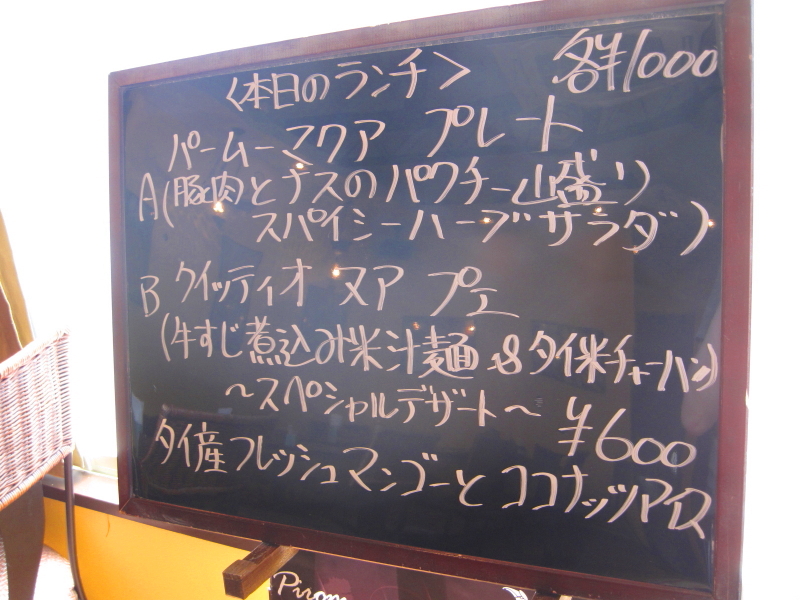 <本日のランチ> 各¥1000
パームーマクア プレート
A(豚肉とナスのパクチー山盛り
スパイシーハーブサラダ)
B クイッティオ ヌア プエ
(牛すじ煮込み米汁麺 & タイ米チャーハン)
~スペシャルデザート~ ¥600
タイ産フレッシュマンゴーとココナッツアイス